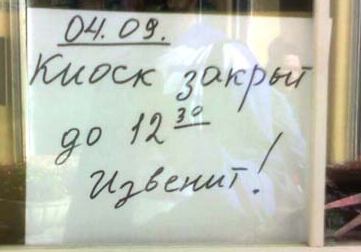 04.09.
Киоск закрыт
до 12 30
Извенит!